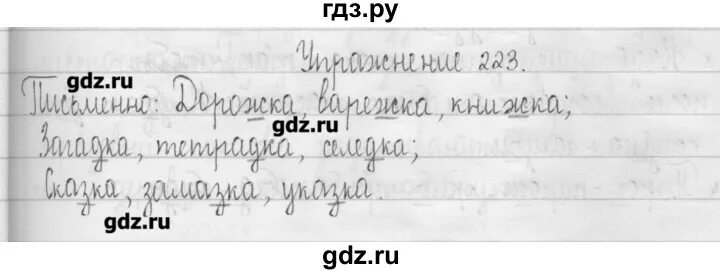 гдз.ру
Упражнение 223.
gdz.ru
Письменно: Дорожка, варежка, книжка;
gdz.ru
Загадка, тетрадка, селедка;
Сказка, замазка, указка.
gdz.ru
gdz.ru
gdz.ru